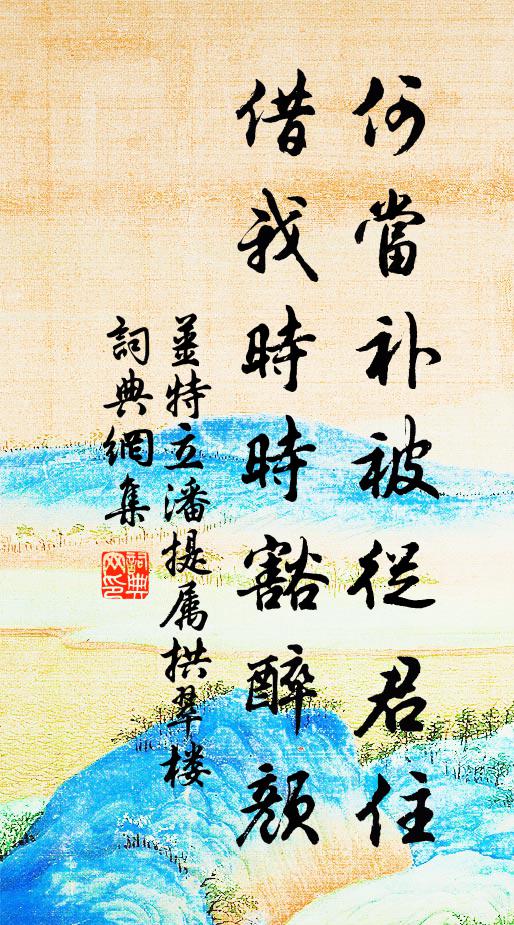 何當补被從君住
借我時時豁醉顏
薑特立潘提属拱翠楼
詞典網集
詞典
网印